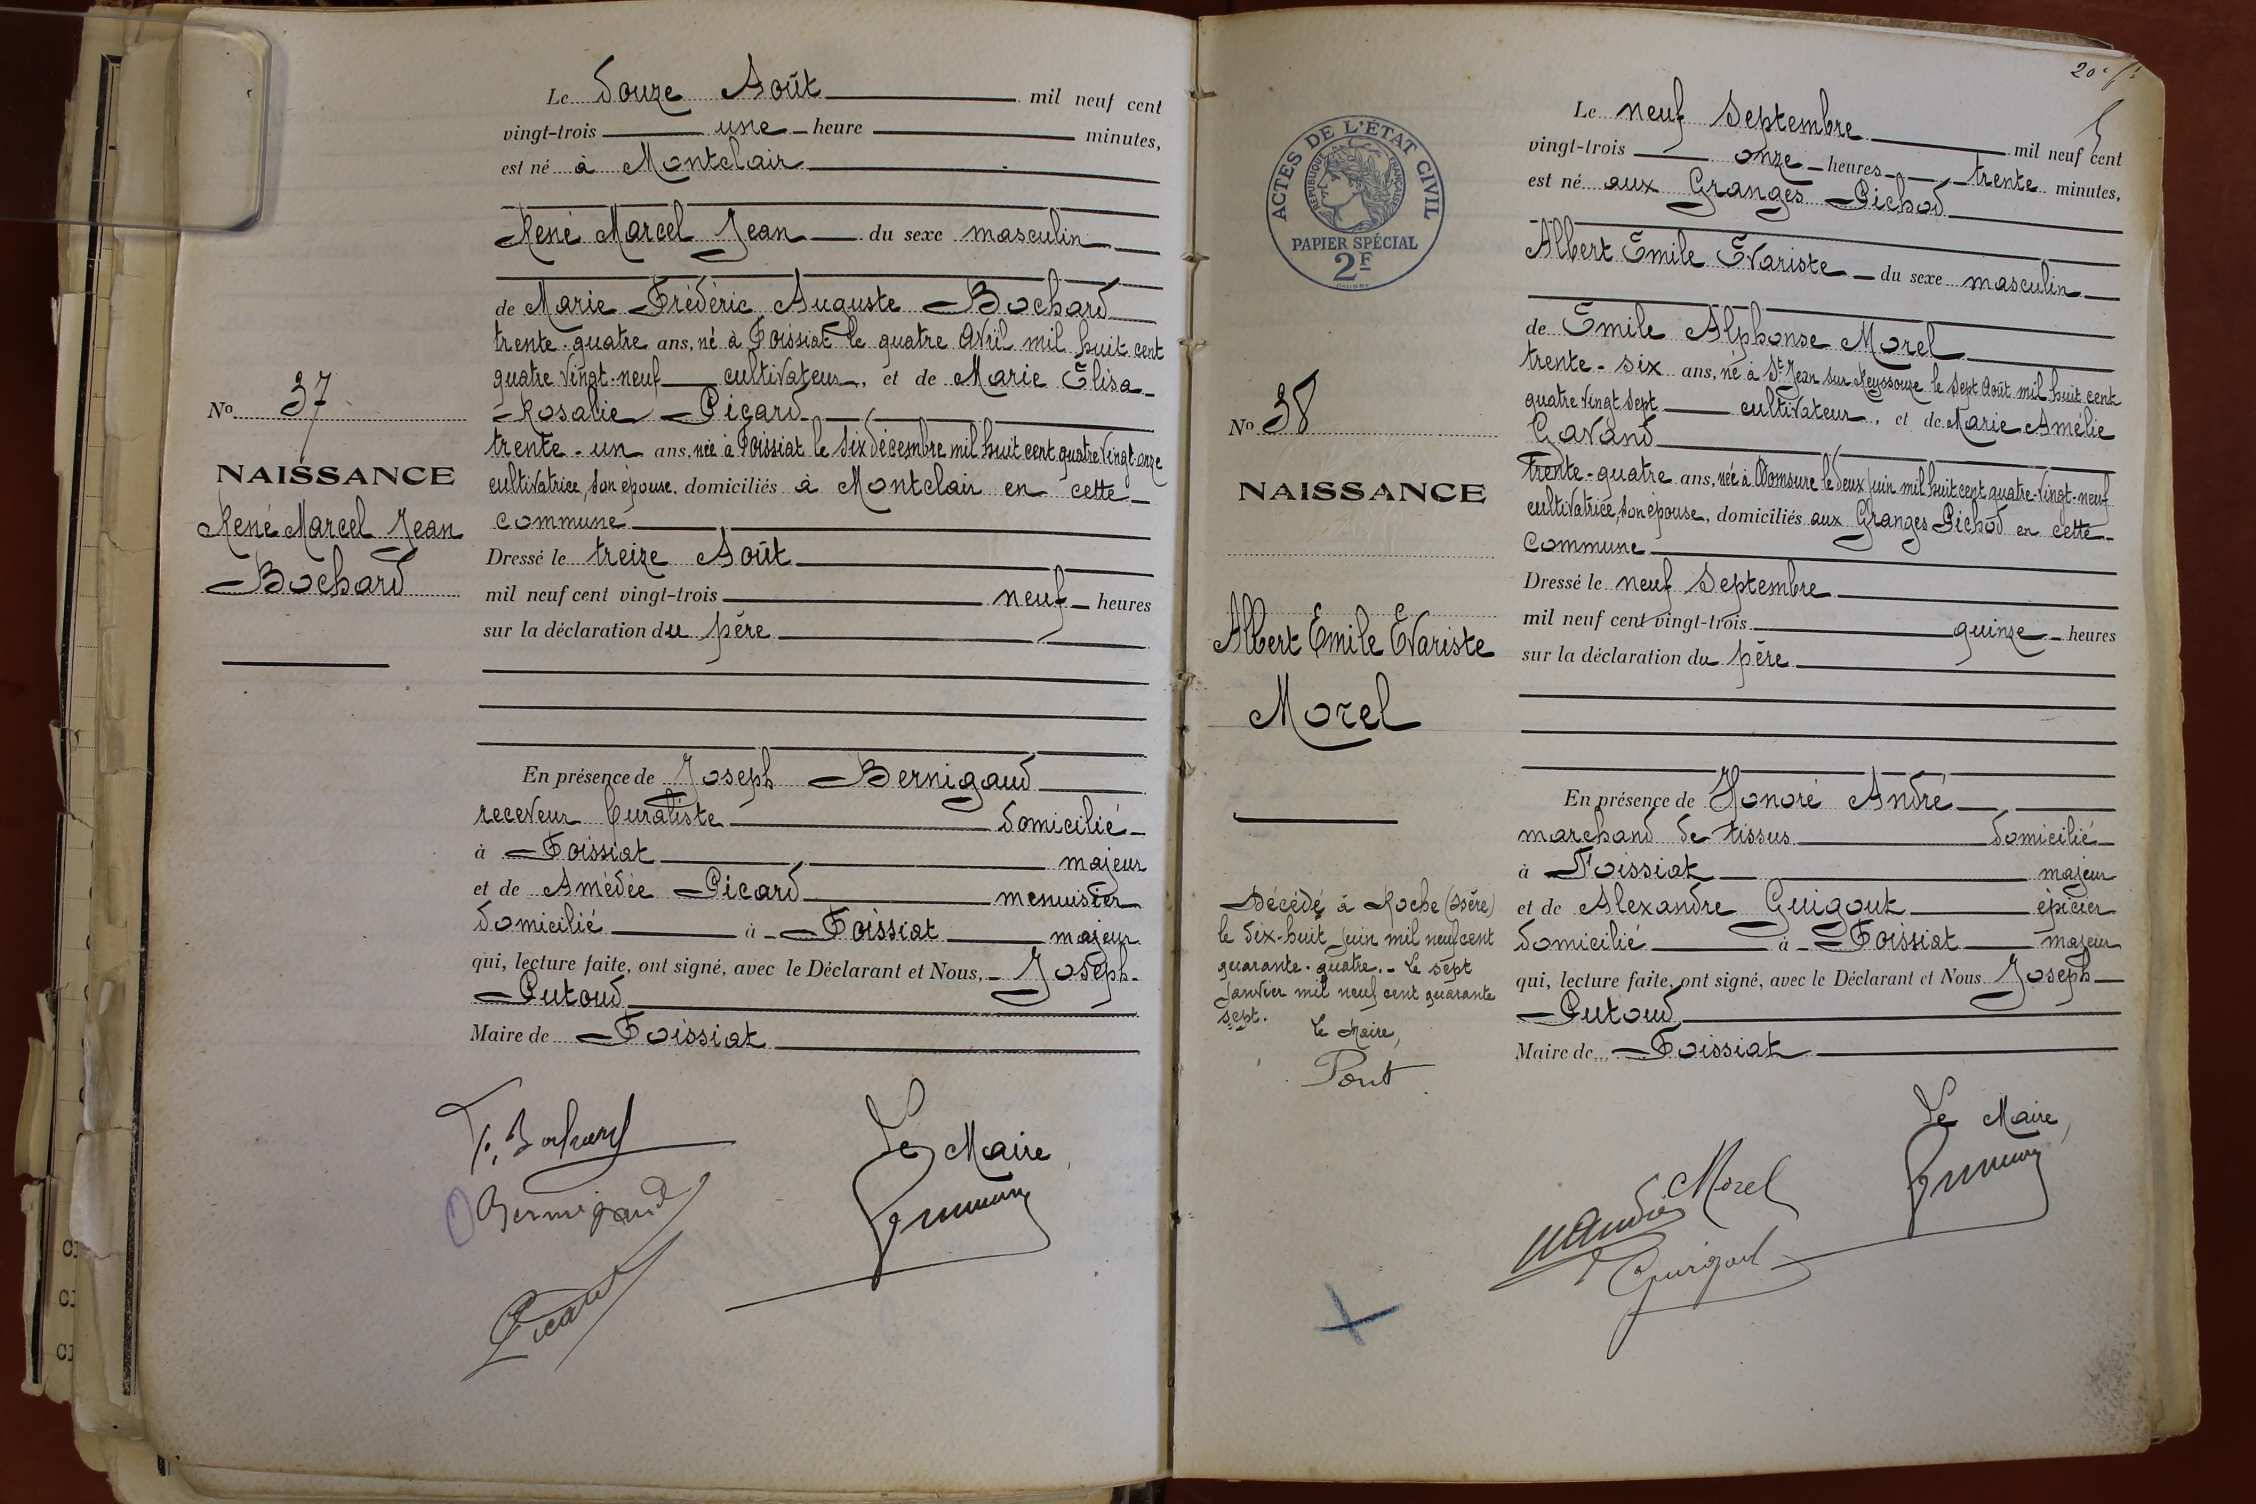 Le douze Août mil neuf cent
vingt-trois une heure minutes,
est né à Montclair
René Marcel Jean du sexe masculin
de Marie Frédéric Auguste Bochard
trente-quatre ans, né à Foissiat le quatre Avril mil huit cent
quatre vingt-neuf cultivateur, et de Marie Élisa
Rosalie Picard
trente-un ans, née à Foissiat le six décembre mil huit cent quatre vingt-onze
cultivatrice, son épouse, domiciliés à Montclair en cette
commune
Dressé le treize Août
mil neuf cent vingt-trois neuf heures
sur la déclaration du père
En présence de Joseph Bernigaud
receveur buraliste domicilié
à Foissiat majeur
et de Amédée Picard menuisier
domicilié à Foissiat majeur
qui, lecture faite, ont signé, avec le Déclarant et Nous, Joseph
Putoud
Maire de Foissiat
No 37
NAISSANCE
René Marcel Jean
Bochard
F. Bochard
Le Maire,
Bernigaud
Picard
20e ft
ACTES DE L'ÉTAT CIVIL
RÉPUBLIQUE FRANÇAISE
PAPIER SPÉCIAL
2F
No 38
NAISSANCE
Albert Émile Évariste
Morel
Décédé à Roche (Isère)
le dix-huit juin mil neuf cent
quarante-quatre. - Le sept
janvier mil neuf cent quarante
sept.
Le Maire,
Pont
Le neuf Septembre mil neuf cent
vingt-trois onze heures trente minutes,
est né aux Granges Pichod
Albert Émile Évariste du sexe masculin
de Émile Alphonse Morel
trente-six ans, né à St Jean sur Reyssouze le sept Août mil huit cent
quatre vingt sept cultivateur, et de Marie Amélie
Gavand
trente-quatre ans, née à Domsure le deux juin mil huit cent quatre-vingt-neuf
cultivatrice, son épouse, domiciliés aux Granges Pichod en cette
commune
Dressé le neuf Septembre
mil neuf cent vingt-trois quinze heures
sur la déclaration du père
En présence de Honoré André
marchand de tissus domicilié
à Foissiat majeur
et de Alexandre Guigout épicier
domicilié à Foissiat majeur
qui, lecture faite, ont signé, avec le Déclarant et Nous Joseph
Putoud
Maire de Foissiat
Le Maire,
Morel
H André
Guigout